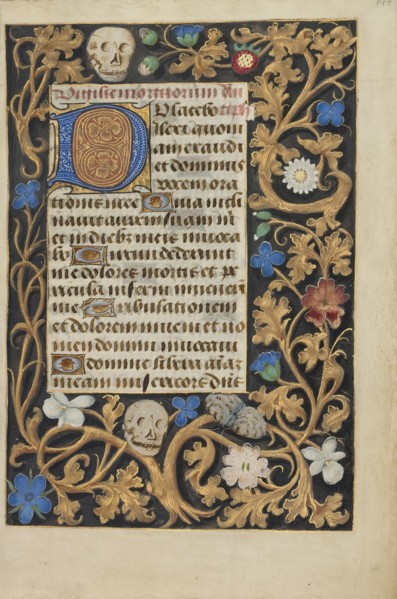 Vigilie mortuorum
Placebo
Dilexi quoni
am exaudi
et dominus
vocem ora
tionis mee Quia incli
navit aurem suam m
et in diebus meis invoca
bo Circumdederunt
me dolores mortis et pe
ricula inferni invenerunt
me Tribulationem
et dolorem inveni et no
men domini invocavi
O domine libera
meam misericors